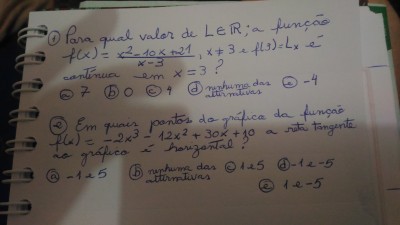 ① Para qual valor de L∈R; a função
f(x) = x²-10x+21 / x-3, x≠3 e f(3)=Lx é
contínua em x=3?
ⓐ 7 ⓑ 0 ⓒ 4 ⓓ nenhuma das alternativas ⓔ -4
② Em quais pontos do gráfico da função
f(x) = -2x³-12x²+30x+10 a reta tangente
ao gráfico é horizontal?
ⓐ -1 e 5 ⓑ nenhuma das alternativas ⓒ 1 e 5 ⓓ -1 e -5
ⓔ 1 e -5